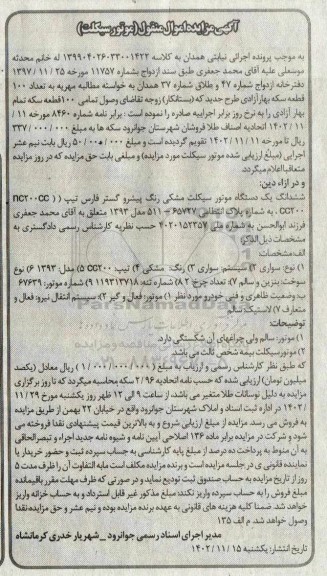 آگهی مزایده اموال منقول (موتور سیکلت)
به موجب پرونده اجرائی نیابتی همدان به کلاسه ۱۳۹۹۰۴۰۲۶۰۳۳۰۰۱۴۲۲ له خانم محدثه
موسعلی علیه آقای محمد جعفری طبق سند ازدواج بشماره ۱۱۷۵۷ مورخه ۲۵ / ۱۱ / ۱۳۹۷
دفترخانه ازدواج شماره ۴۷ و طلاق شماره ۳۷ همدان به خواسته مطالبه مهریه به تعداد ۱۰۰
قطعه سکه بهار آزادی طرح جدید که (بستانکار) زوجه تقاضای وصول تمامی ۱۰۰ قطعه سکه تمام
بهار آزادی را به نرخ روز برابر اجراییه صادره را نموده است : برابر نامه شماره ۸۴۶۰ مورخه ۱۱ /
۱۱ / ۱۴۰۲ اتحادیه اصناف طلا فروشان شهرستان جوانرود سکه ها به مبلغ ۰۰۰ / ۰۰۰ / ۳۳۷
ریال تا مورخه ۱۱ / ۱۱ / ۱۴۰۲ تقویم گردیده است و مبلغ ریال بابت نیم عشر
اجرایی (مبلغ ارزیابی شده موتور سیکلت مورد مزایده) و مبلغی بابت حق مزایده که در روز مزایده
متعاقبا اعلام میگردد
و در ازاء دین:
ششدانگ یک دستگاه موتور سیکلت مشکی رنگ پیشرو گستر فارس تیپ ( ( nc۲۰۰cc
cc۲۰۰ . به شماره پلاک انتظامی ۶۵۷۲۷ – ۵۱۱ مدل ۱۳۹۳ متعلق به آقای محمد جعفری
فرزند ابوالحسن به شماره ملی ۴۰۲۰۱۵۲۳۵۷ حسب نظریه کارشناس رسمی دادگستری به
مشخصات ذیل الذکر:
الف مشخصات
۱) نوع: سواری ۲) سیستم: سواری ۳) رنگ: مشکی ۴) تیپ: cc۲۰۰ ۵) مدل: ۱۳۹۳ ۶) نوع
سوخت: بنزین و سالم ۷): تعداد چرخ ۲ ۸) شماره تنه: ۱۱۹۳۱۳۷۱۸ ۹) شماره موتور: ۶۷۶۳۹
ب وضعیت ظاهری و فنی خودرو مورد نظر ۱) موتور: فعال و گیر ۲): سیستم انتقال نیرو: فعال و
متعارف ۷) لاستیک: سالم
توضیحات:
۱) موتور: سالم ولی چراغهای آن شکستگی دارد.
۲) موتورسیکلت بیمه شخص ثالث می باشد.
که طبق نظر کارشناس رسمی و ارزیاب به مبلغ (۰۰۰/ ۰۰۰/ ۱۰۰۰) ریال معادل (یکصد
میلیون تومان) ارزیابی شده که حسب نامه اتحادیه ۹۶/ ۲ سکه محاسبه میگردد که تا روز برگزاری
مزایده به دلیل نوسانات طلا متغیر می باشد، از ساعت ۹ الی ۱۲ ظهر روز یکشنبه مورخ ۲۹ / ۱۱
/ ۱۴۰۲ در اداره ثبت اسناد و املاک شهرستان جوانرود واقع در خیابان ۲۲ بهمن از طریق مزایده
به فروش می رسد. مزایده از مبلغ ارزیابی شروع و به بالاترین قیمت پیشنهادی نقدا فروخته می
شود و شرکت در مزایده برابر ماده ۱۳۶ اصلاحی آیین نامه و شیوه نامه جدید اجراء و تبصر الحاقی
به آن منوط به پرداخت ده درصد از مبلغ پایه کارشناسی به حساب سپرده ثبت و حضور خریدار یا
نماینده قانونی ی در جلسه مزایده است و برنده مزایده مکلف است مابه التفاوت آن را ظرف مدت ۵
روز از تاریخ مزایده به حساب صندوق ثبت تودیع نماید و در صورتی که ظرف مهلت مقرر باقیمانده
مبلغ فروش را به حساب سپرده واریز نکند؛ مبلغ مذکور غیر قابل استرداد و به حساب خزانه واریز
خواهد شد. ضمنا کلیه هزینه های قانونی به عهده برنده مزایده بوده و نیم عشر و حق مزایده نقدا
وصول خواهد شد. م الف ۱۳۵
مدیر اجرای اسناد رسمی جوانرود – شهریار خدری کرمانشاه
تاریخ انتشار: یکشنبه ۱۵ / ۱۱ / ۱۴۰۲